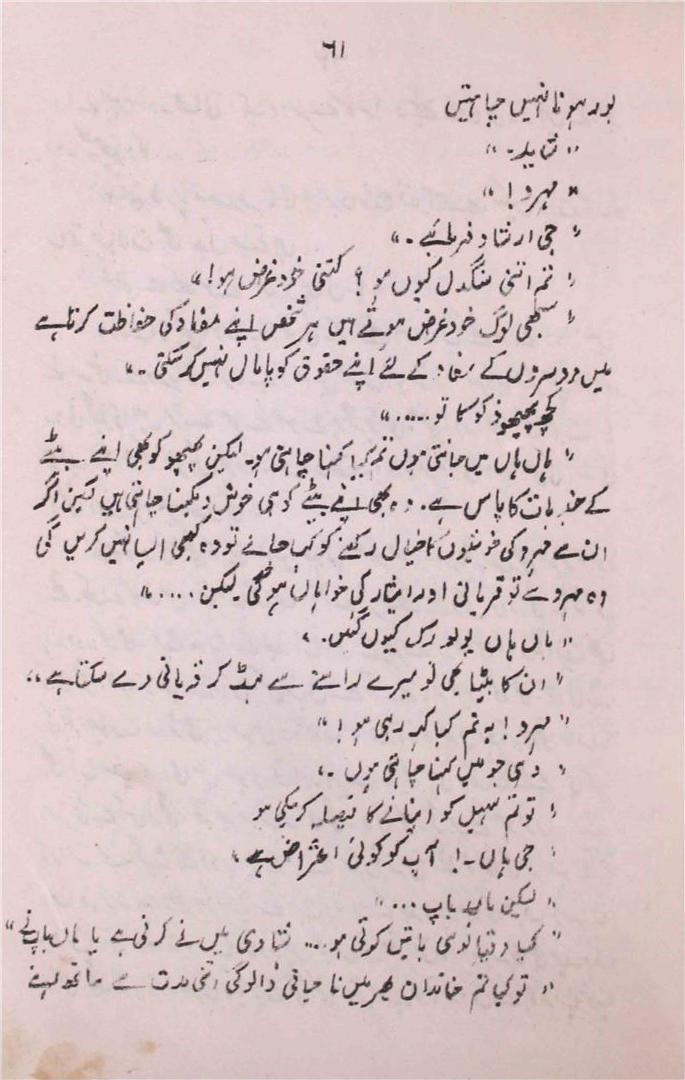 ۶۱
بور ہونا نہیں چاہتیں
" شاید۔ "
" مہرو! "
" جی ارشاد فرمائیے۔ "
" تم اتنی سنگدل کیوں ہو؟ کتنی خودغرض ہو! "
" سبھی لوگ خودغرض ہوتے ہیں ہر شخص اپنے مفاد کی حفاظت کرتا ہے
میں دوسروں کے مفاد کے لئے اپنے حقوق کو پامال نہیں کرسکتی۔ "
کچھ پھپھو کا تو..... "
" ہاں ہاں میں جانتی ہوں تم کیا کہنا چاہتی ہو۔ لیکن پھپھو کو بھی اپنے بیٹے
کے جذبات کا پاس ہے۔ وہ بھی اپنے بیٹے کو ہی خوش دیکھنا چاہتی ہیں لیکن اگر
ان سے مہرو کی خوشیوں کا خیال رکھنے کو کہا جائے تو وہ کبھی ایسا نہیں کریں گی
وہ مہرو سے تو قربانی اور ایثار کی خواہاں ہونگی لیکن .... "
" ہاں ہاں بولو رک کیوں گئیں۔ "
" ان کا بیٹا بھی تو میرے راستے سے ہٹ کر قربانی دے سکتا ہے "
" مہرو! یہ تم کیا کہہ رہی ہو! "
" وہی جو میں کہنا چاہتی ہوں۔ "
" تو تم سہیل کو اپنانے کا فیصلہ کر چکی ہو
" جی ہاں۔! آپ کو کوئی اعتراض ہے "
" لیکن ماں باپ ... "
" کیا دقیانوسی باتیں کرتی ہو... شادی میں نے کرنی ہے یا ماں باپ نے "
" تو کیا تم خاندان بھر میں ناچاقی ڈالوگی اتنی مدت سے ساتھ رہنے